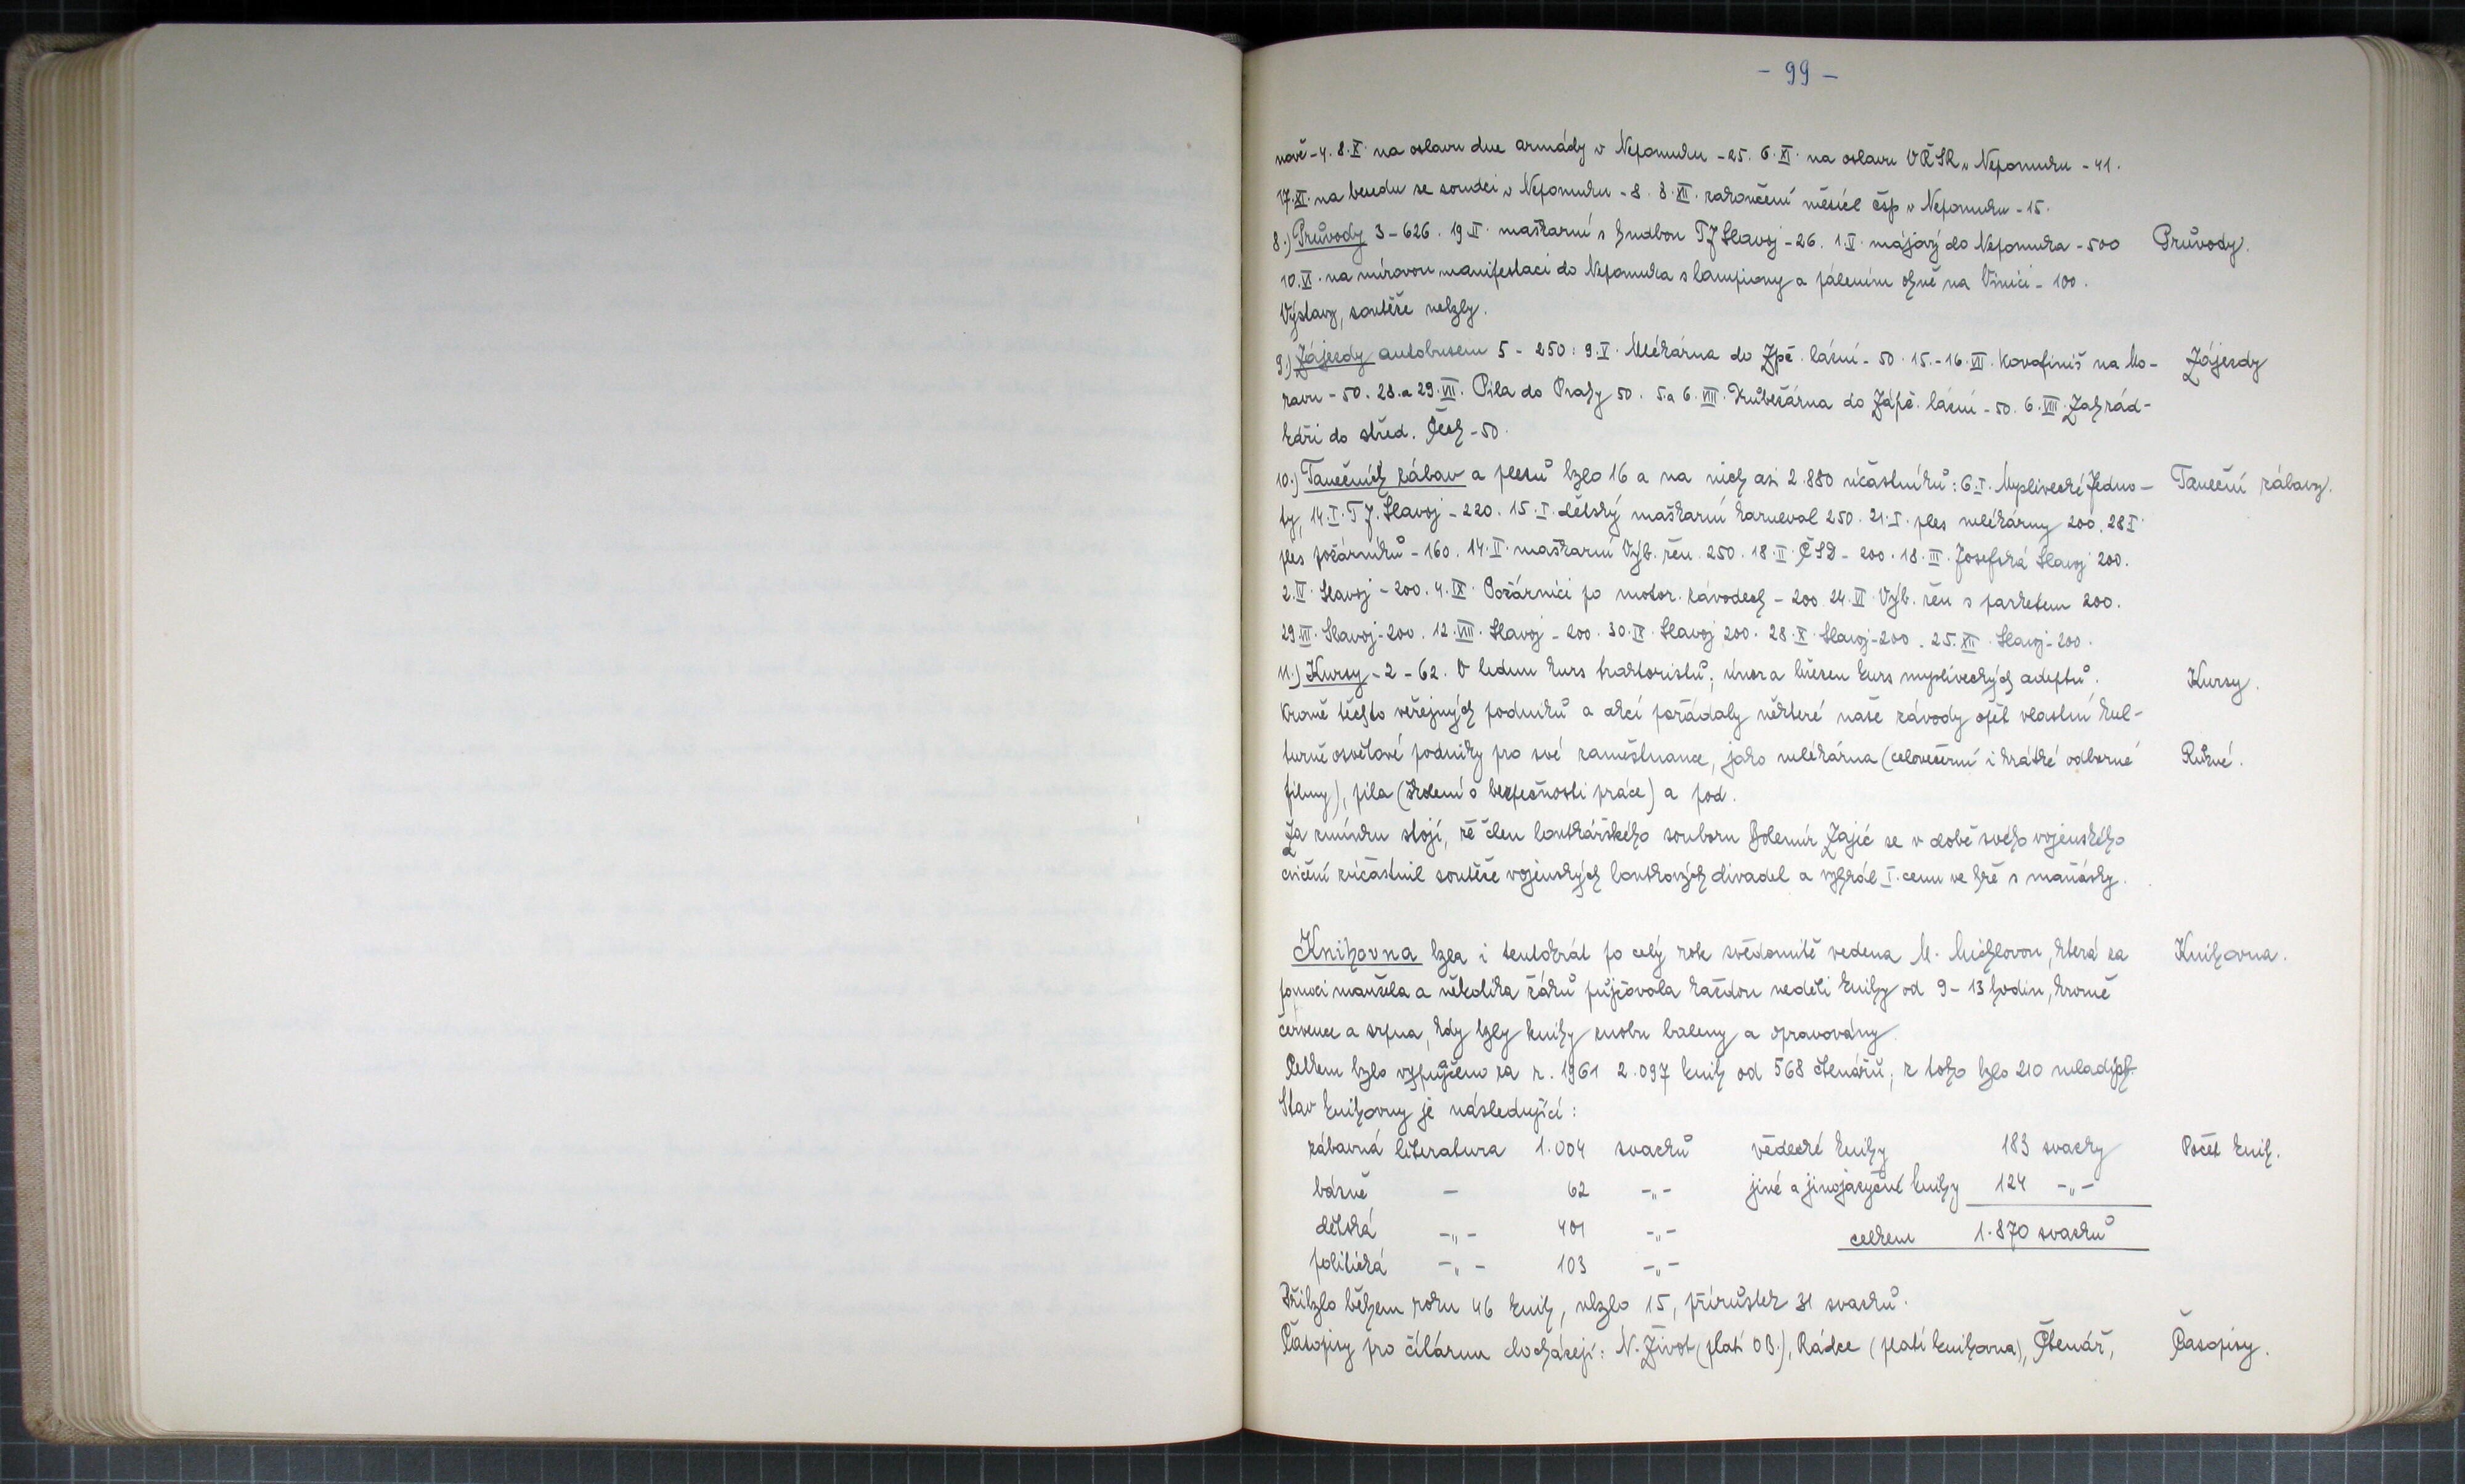 - 99 -
nově - 4. 8.X. na oslavu dne armády v Nepomuku - 25. 6.XI. na oslavu VŘSR v Nepomuku - 41.
17.XI. na besedu se soudci v Nepomuku - 8. 8.XII. zakončení měsíce čsp v Nepomuku - 15.
8.) Průvody 3 - 626. 19.II. maškarní s hudbou TJ Slavoj - 26. 1.V. májový do Nepomuka - 500 Průvody.
10.VI. na mírovou manifestaci do Nepomuka s lampiony a pálením ohně na Vinici - 100.
Výstavy, soutěže nebyly.
9.) Zájezdy autobusem 5 - 250: 9.V. Mlékárna do Zpč. lázní - 50. 15.-16.VII. Kovofiniš na Mo- Zájezdy
ravu - 50. 28. a 29.VII. Pila do Prahy 50. 5. a 6.VIII. Drůbežárna do Zápč. lázní - 50. 6.VIII. Zahrád-
káři do střed. Čech - 50.
10.) Tanečních zábav a plesů bylo 16 a na nich asi 2.880 účastníků: 6.I. Myslivecké Jedno- Taneční zábavy.
ty, 14.I. TJ. Slavoj - 220. 15.I. dětský maškarní karneval 250. 21.I. ples mlékárny 200. 28.I.
ples požárníků - 160. 14.II. maškarní Výb. žen 250. 18.II. ČSD - 200. 18.III. Josefská Slavoj 200.
2.IV. Slavoj - 200. 4.IX. Požárníci po motor. závodech - 200 24.VI. Výb. žen s parketem 200.
29.VII. Slavoj - 200. 12.VIII. Slavoj - 200. 30.IX. Slavoj 200. 28.X. Slavoj - 200. 25.XII. Slavoj - 200.
11.) Kursy - 2 - 62. V lednu kurs traktoristů; únor a březen kurs mysliveckých adeptů. Kursy.
Kromě těchto veřejných podniků a akcí pořádaly některé naše závody opět vlastní kul-
turně osvětové podniky pro své zaměstnance, jako mlékárna (celovečerní i krátké odborné Různé.
filmy), pila (školení o bezpečnosti práce) a pod.
Za zmínku stojí, že člen loutkářského souboru Bolemír Zajíc se v době svého vojenského
cvičení zúčastnil soutěže vojenských loutkových divadel a vyhrál I. cenu ve hře s maňásky.
Knihovna byla i tentokrát po celý rok svědomitě vedena M. Michlovou, která za Knihovna.
pomoci manžela a několika žáků půjčovala každou neděli knihy od 9 - 13 hodin, kromě
července a srpna, kdy byly knihy znovu baleny a opravovány.
Celkem bylo vypůjčeno za r. 1961 2.097 knih od 568 čtenářů; z toho bylo 210 mladých.
Stav knihovny je následující:
zábavná literatura 1.004 svazků vědecké knihy 183 svazky Počet knih.
básně - 62 -„- jiné a jinojazyčné knihy 124 -„-
dětská -„- 401 -„- celkem 1.870 svazků
politická -„- 103 -„-
Přibylo během roku 46 knih, ubylo 15, přírůstek 31 svazků.
Časopisy pro čítárnu docházejí: N. Život (platí OB.), Rádce (platí knihovna), Čtenář, Časopisy.